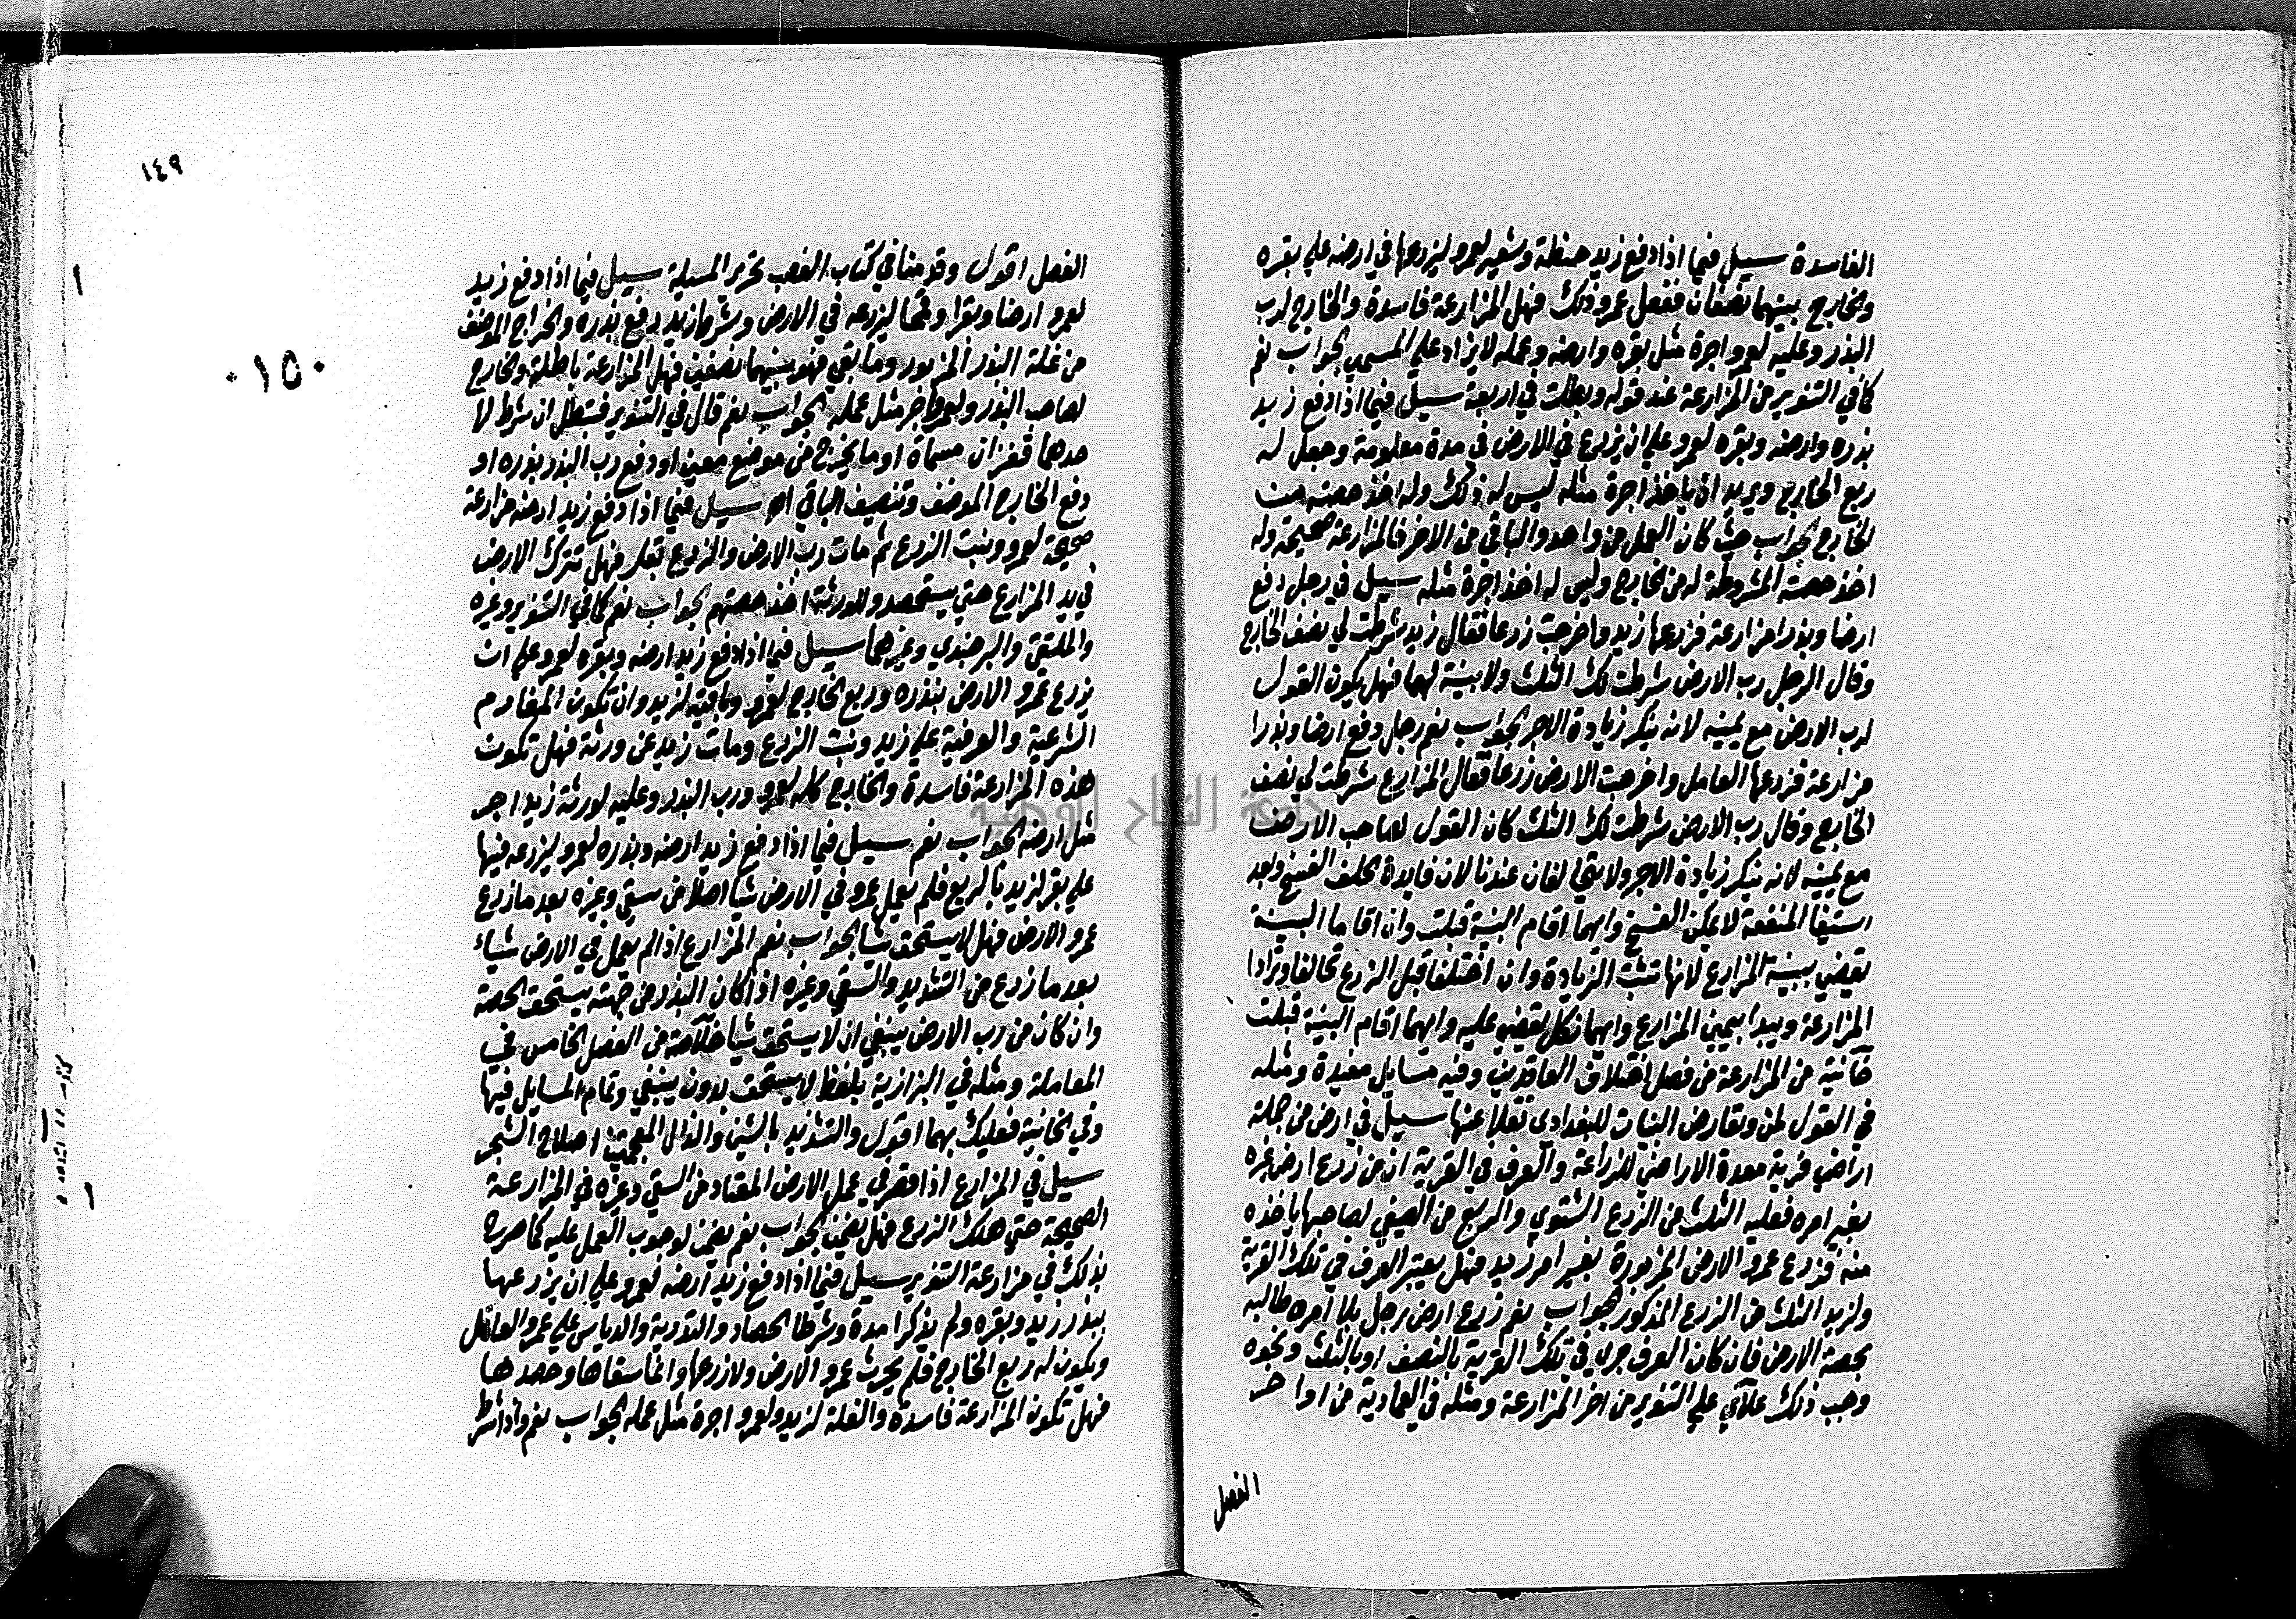 الفاسدة سيل فيما اذا دفع زيد حنطة وشعير لعمرو ليزرعها في ارضه علي بقره
والخارج بينهما نصفان ففعل عمرو ذلك فهل المزارعة فاسدة والخارج لرب
البذر وعليه لعمرو اجرة مثل بقره وارضه وعمله لا يزاد علي المسمي الجواب نعم
كما في التنوير من المزارعة عند قوله وبطلت في اربعة سيل فيما اذا دفع زيد
بذره وارضه وبقره لعمرو علي ان يزرع في الارض في مدة معلومة وجعل له
ربع الخارج ويريد ان ياخذ اجرة مثله ليس له ذلك وله اخذ حصته من
الخارج الجواب حيث كان العمل من واحد والباقي من الاخر فالمزارعة صحيحة وله
اخذ حصته المشروطة له من الخارج وليس له اخذ اجرة مثله سيل في رجل دفع
ارضا وبذرا مزارعة فزرعها زيد واخرجت زرعا فقال زيد شرطت لي نصف الخارج
وقال الرجل رب الارض شرطت لك الثلث ولا بينة لهما فهل يكون القول
لرب الارض مع يمينه لانه ينكر زيادة الاجر الجواب نعم رجل دفع ارضا وبذرا
مزارعة فزرعها العامل واخرجت الارض زرعا فقال المزارع شرطت لي نصف
الخارج وقال رب الارض شرطت لك الثلث كان القول لصاحب الارض
مع يمينه لانه ينكر زيادة الاجر ولا يتحالفان عندنا لان فايدة الحلف الفسخ وبعد
استيفا المنفعة لا يمكن الفسخ وايهما اقام البينة قبلت وان اقاما البينة
يقضي ببينة المزارع لانها تثبت الزيادة وان اختلفا قبل الزرع تحالفا وترادا
المزارعة ويبدا بيمين المزارع وايهما نكل يقضي عليه وايهما اقام البينة قبلت
خانية من المزارعة من فصل اختلاف العاقدين وفيه مسايل مفيدة ومثله
في القول لمن وتعارض البينات للبغدادي نقلا عنها سيل في ارض من جملة
اراضي قرية معدة الاراضي للزراعة والعرف في القرية ان من زرع ارض غيره
بغير امره فعليه الثلث من الزرع الشتوي والربع من الصيفي لصاحبها ياخذه
منه فزرع عمرو الارض المزبورة بغير امر زيد فهل يعتبر العرف في تلك القرية
ولزيد الثلث من الزرع المذكور الجواب نعم زرع ارض رجل بلا امره طالبه
بحصة الارض فان كان العرف جري في تلك القرية بالنصف او بالثلث ونحوه
وجب ذلك علائي علي التنوير من اخر المزارعة ومثله في العمادية من اواخر
الفصل
١٤٩
١٥٠
الفصل اقول وقدمنا في كتاب الغصب تحرير المسيلة سيل فيما اذا دفع زيد
لعمرو ارضا وبقرا وقمحا ليزرعه في الارض وشرط زيد دفع بذره والخراج الموظف
من غلة البذر المزبور وما بقي فهو بينهما نصفين فهل المزارعة باطلة والخارج
لصاحب البذر ولعمرو اجر مثل عمله الجواب نعم قال في التنوير فتبطل ان شرط لا
حدهما قفزان مسماة او ما يخرج من موضع معين او دفع رب البذر بذره او
دفع الخارج الموظف وتنصيف الباقي اه سيل فيما اذا دفع زيد ارضه مزارعة
صحيحة لعمرو ونبت الزرع ثم مات رب الارض والزرع بقل فهل تترك الارض
في يد المزارع حتي يستحصد وللورثة اخذ حصتهم الجواب نعم كما في التنوير وغيره
والملتقي والبرجندي وغيرهما سيل فيما اذا دفع زيد ارضه وبقره لعمرو علي ان
يزرع عمرو الارض ببذره وربع الخارج لعمرو وباقيه لزيد وان تكون المغارم
الشرعية والعرفية علي زيد ونبت الزرع ومات زيد عن ورثة فهل تكون
هذه المزارعة فاسدة والخارج كله لعمرو رب البذر وعليه لورثة زيد اجر
مثل ارضه الجواب نعم سيل فيما اذا دفع زيد ارضه وبذره لعمرو ليزرعه فيها
علي بقر لزيد بالربع فلم يعمل عمرو في الارض شيا اصلا من سقي وغيره بعد ما زرع
عمرو الارض فهل لا يستحق شيا الجواب نعم المزارع اذا لم يعمل في الارض شياء
بعد ما زرع من التشذيب والسقي وغيره اذا كان البذر من جهته يستحق الحصة
وان كان من رب الارض ينبغي ان لا يستحق شيا خلاصة من الفصل الخامس في
المعاملة ومثله في البزازية بلفظ لا يستحق بدون ينبغي وتمام المسايل فيها
وفي الخانية فعليك بهما اقول والتشذيب بالشين والذال المعجمتين اصلاح الشجر
سيل في المزارع اذا قصر في عمل الارض المعتاد من السقي وغيره في المزارعة
الصحيحة حتي هلك الزرع فهل يضمن الجواب نعم يضمن لوجوب العمل عليه كما صرح
بذلك في مزارعة التنوير سيل فيما اذا دفع زيد ارضه لعمرو علي ان يزرعها
ببذر زيد وبقره ولم يذكرا مدة وشرطا الحصاد والتذرية والدياس علي عمرو العامل
ويكون له ربع الخارج فلم يحرث عمرو الارض ولا زرعها وانما سقاها وحصدها
فهل تكون المزارعة فاسدة والغلة لزيد ولعمرو اجرة مثل عمله الجواب نعم واذا شرط